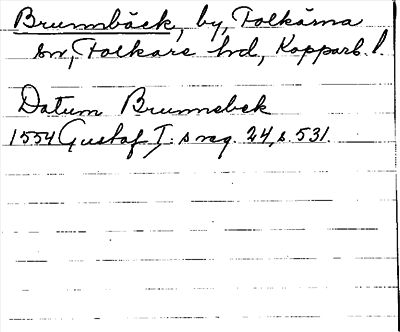 Brunnbäck, by, Folkärna
sn, Folkare hd, Kopparb. l.
Datum Brunnebek
1554 Gustaf I:s reg. 24, s. 531.